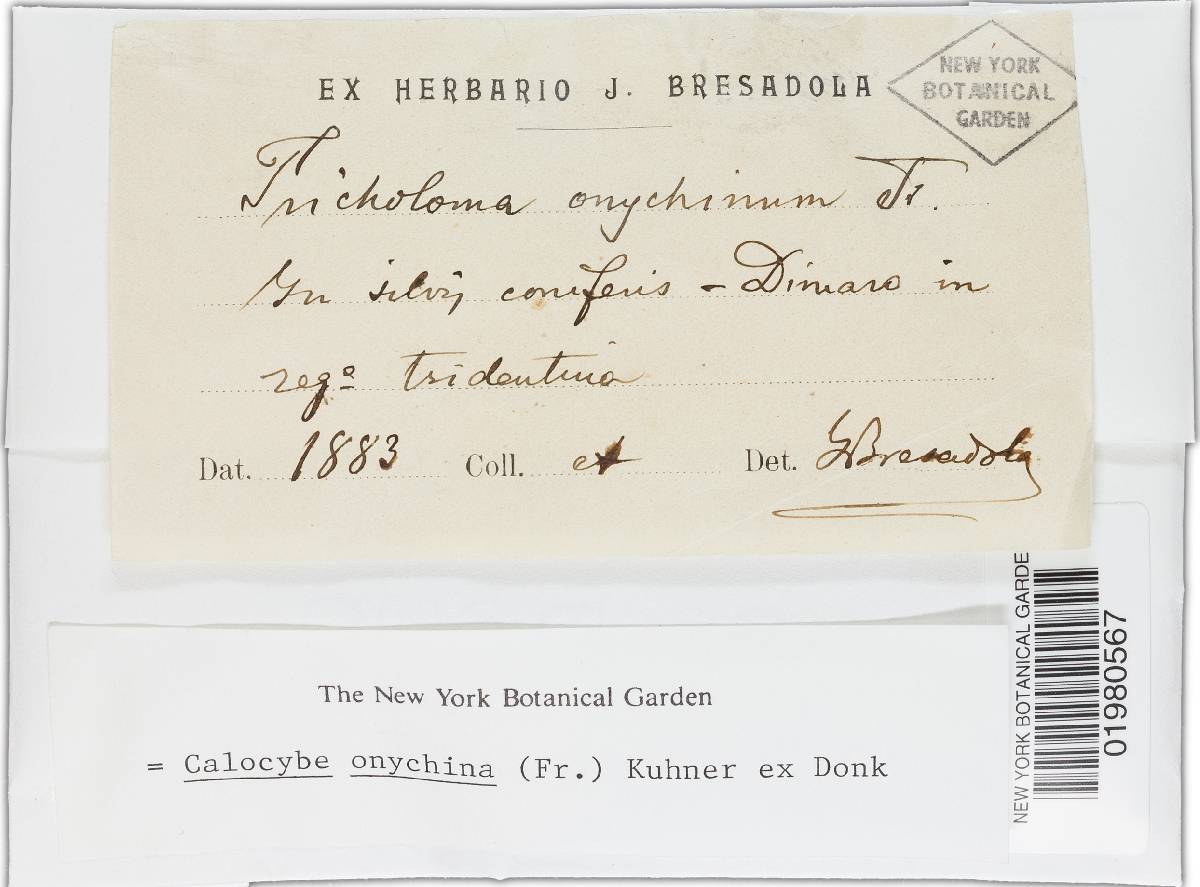 EX HERBARIO J. BRESADOLA
NEW YORK
BOTANICAL
GARDEN
Tricholoma onychinum Fr.
In silvis coniferis - Dimaro in
regº tridentina
Dat. 1883 Coll. et Det. GBresadola
NEW YORK BOTANICAL GARDE
01980567
The New York Botanical Garden
= Calocybe onychina (Fr.) Kuhner ex Donk